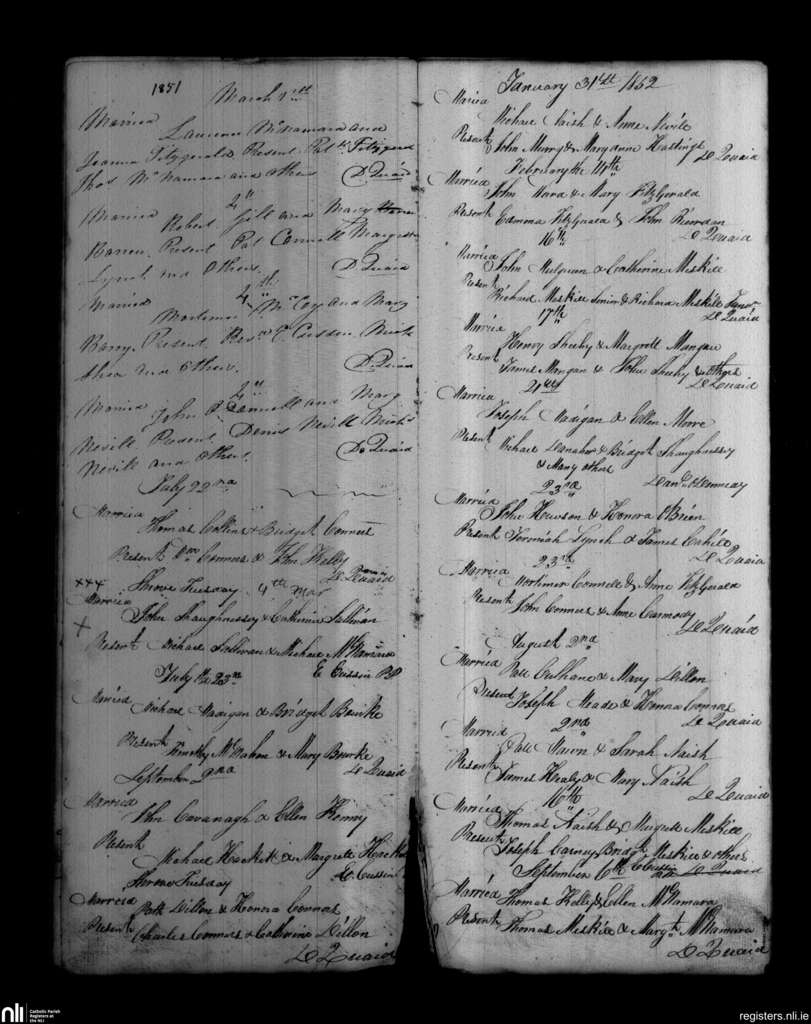 1851
March 1st
Married
Laurence McNamara and
Joanna Fitzgerald Present Patk Fitzgerald
Thos McNamara and others D Quaid
4th
Married Robert Gill and Mary
Barron. Present Pat Connell Margaret
Lynch and Others. D Quaid
4th
Married Mortimer McCoy and Mary
Barry. Present, Revd E. Cussen, Michl
Shea and Others. D. Quaid
4th
Married John O'Donnell and Mary
Nevill Present, Denis Nevill Michl
Nevill and Others. D. Quaid
July 22nd
Married
Thomas Collins & Bridget Connors
Present Wm Connors & John Kelly
D. Quaid
xxx Shrove Tuesday 4th Mar
Married
x John Shaughnessy & Catherine Sullivan
Present Michael Sullivan & Michael McNamara
E Cussen PP
July the 23rd
Married
Michael Madigan & Bridget Bourke
Present
Timothy McMahon & Mary Bourke
D Quaid
September 2nd
Married
John Cavanagh & Ellen Henry
Present
Michael Hackett & Margrett Hackett
E. Cussen
Shrove Tuesday
Married
Patk Dillon & Honora Connors
Present
Charles Connors & Catherine Dillon
D. Quaid
January 31st 1852
Married
Michael Naish & Anne Nevile
Present
John Murry & Mary anne Hastings
D Quaid
February the 10th
Married
John Ward & Mary FitzGerald
Present
Edmond FitzGerald & John Riordan
D Quaid
16th
Married
John Mulquin & Catherine Meskill
Present
Richard Meskill Senior & Richard Meskill Junr
D Quaid
17th
Married
Henry Sheehy & Margrett Mangan
Present
James Mangan & John Sheehy & others
D Quaid
21st
Married
Joseph Madigan & Ellen Moore
Present
Michael Danaher & Bridget Shaughnessy
& Many others
Danl OKennedy
23rd
Married
John Hewson & Honora O'Brien
Present Jeremiah Lynch & James Cahill
D Quaid
23rd
Married
Mortimer Connell & Anne FitzGerald
Present
John Connors & Anne Carmody
D Quaid
August 2nd
Married
Patt Culhane & Mary Dillon
Present
Joseph Meade & Honora Connors
D Quaid
2nd
Married
Patt Naish & Sarah Naish
Present
James Healy & Mary Naish
D Quaid
16th
Married
Thomas Naish & Margrett Meskill
Present
Joseph Carney Bridgt Meskill & others
September 6th E Cussen D Quaid
Married
Thomas Kelly & Ellen McNamara
Present
Thomas Meskill & Margt McNamara
D. Quaid
nli Catholic Parish
Registers at
the NLI
registers.nli.ie